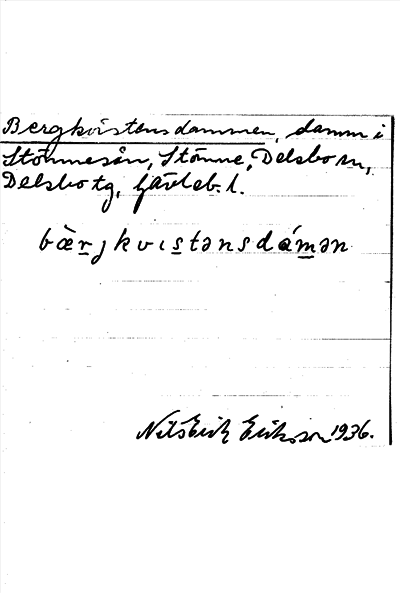 Bergkvistensdammen, damm i
Stömmesån, Stömne, Delsbo sn,
Delsbo tg, Gävleb. l.
bæ̀r̲jkvıs̲tənsdám̲ən
Nils Erik Eriksson 1936.